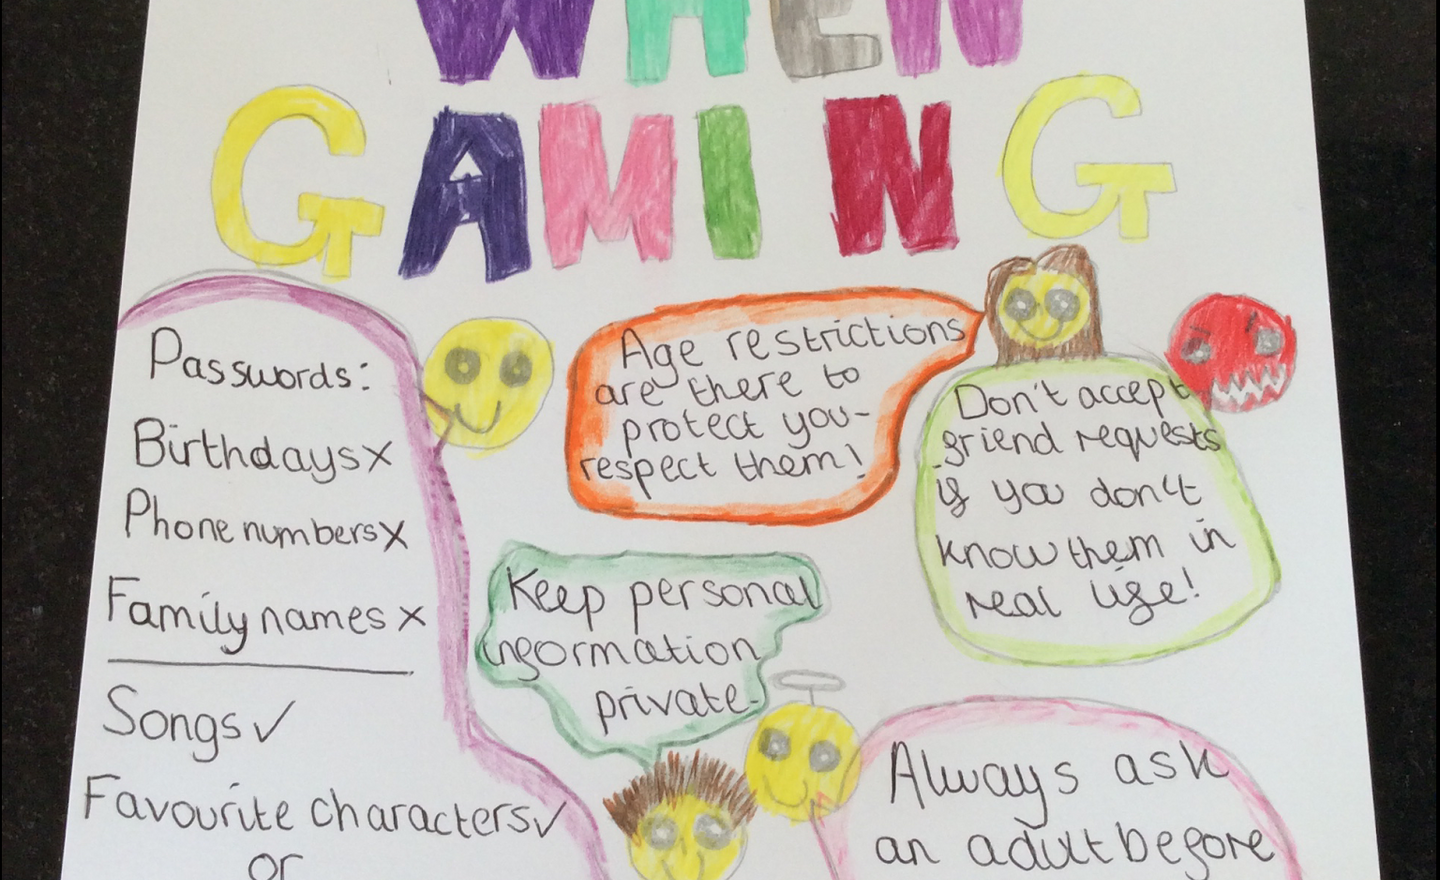 WHEN
GAMING
Passwords:
Birthdays x
Phone numbers x
Family names x
Songs ✓
Favourite characters ✓
or
Age restrictions
are there to
protect you-
respect them!
Don't accept
friend requests
if you don't
know them in
real life!
Keep personal
information
private
Always ask
an adult before